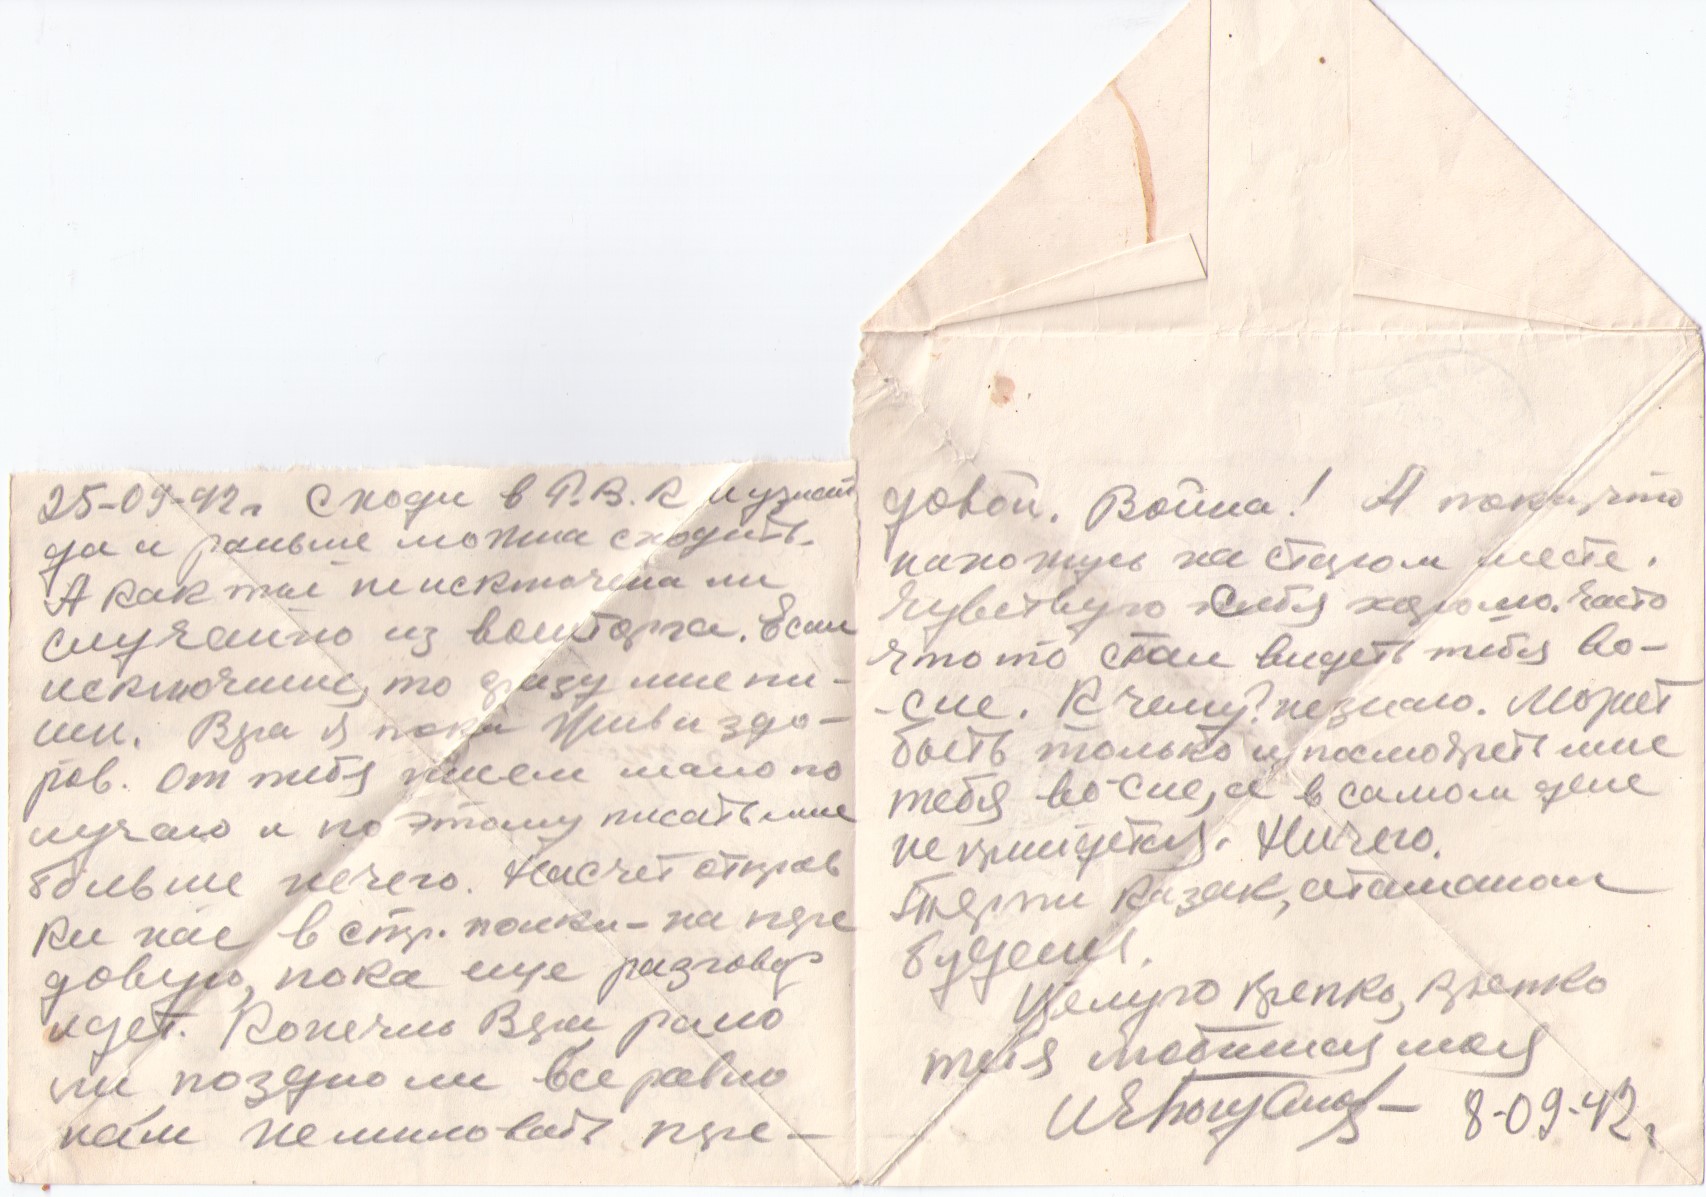 25-09-42г. Сходи в Р.В.К и узнай
да и раньше можна сходить.
А как там не исключена ли
случайно из военторга. Если
исключили, то сразу мне пи-
ши. Вера я пока жив и здо-
ров. От тебя писем мало по
лучаю и по этому писать мне
больше нечего. Насчет отправ
ки нас в стр. полки – на пере
довую, пока еще разговор
идет. Конечно Вера рано
ли поздно ли все равно
нам не миновать пере-
довой. Война! А пока, что
нахожусь на старом месте.
Чувствую себя хорошо. Часто
что то стал видеть тебя во-
-сне. К чему? не знаю. Может
быть только и посмотреть мне
тебя во-сне, а в самом деле
не придется. Ничего.
Терпи казак, атаманом
будешь.
Целую крепко, крепко
тебя любимая моя
8-09-42г.